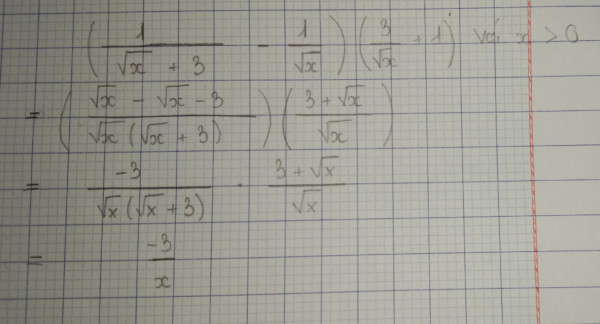 (1/(√x + 3) - 1/√x)(3/√x + 1) với x > 0
= ((√x - √x - 3)/(√x(√x + 3)))((3 + √x)/√x)
= -3/(√x(√x + 3)) · (3 + √x)/√x
= -3/x